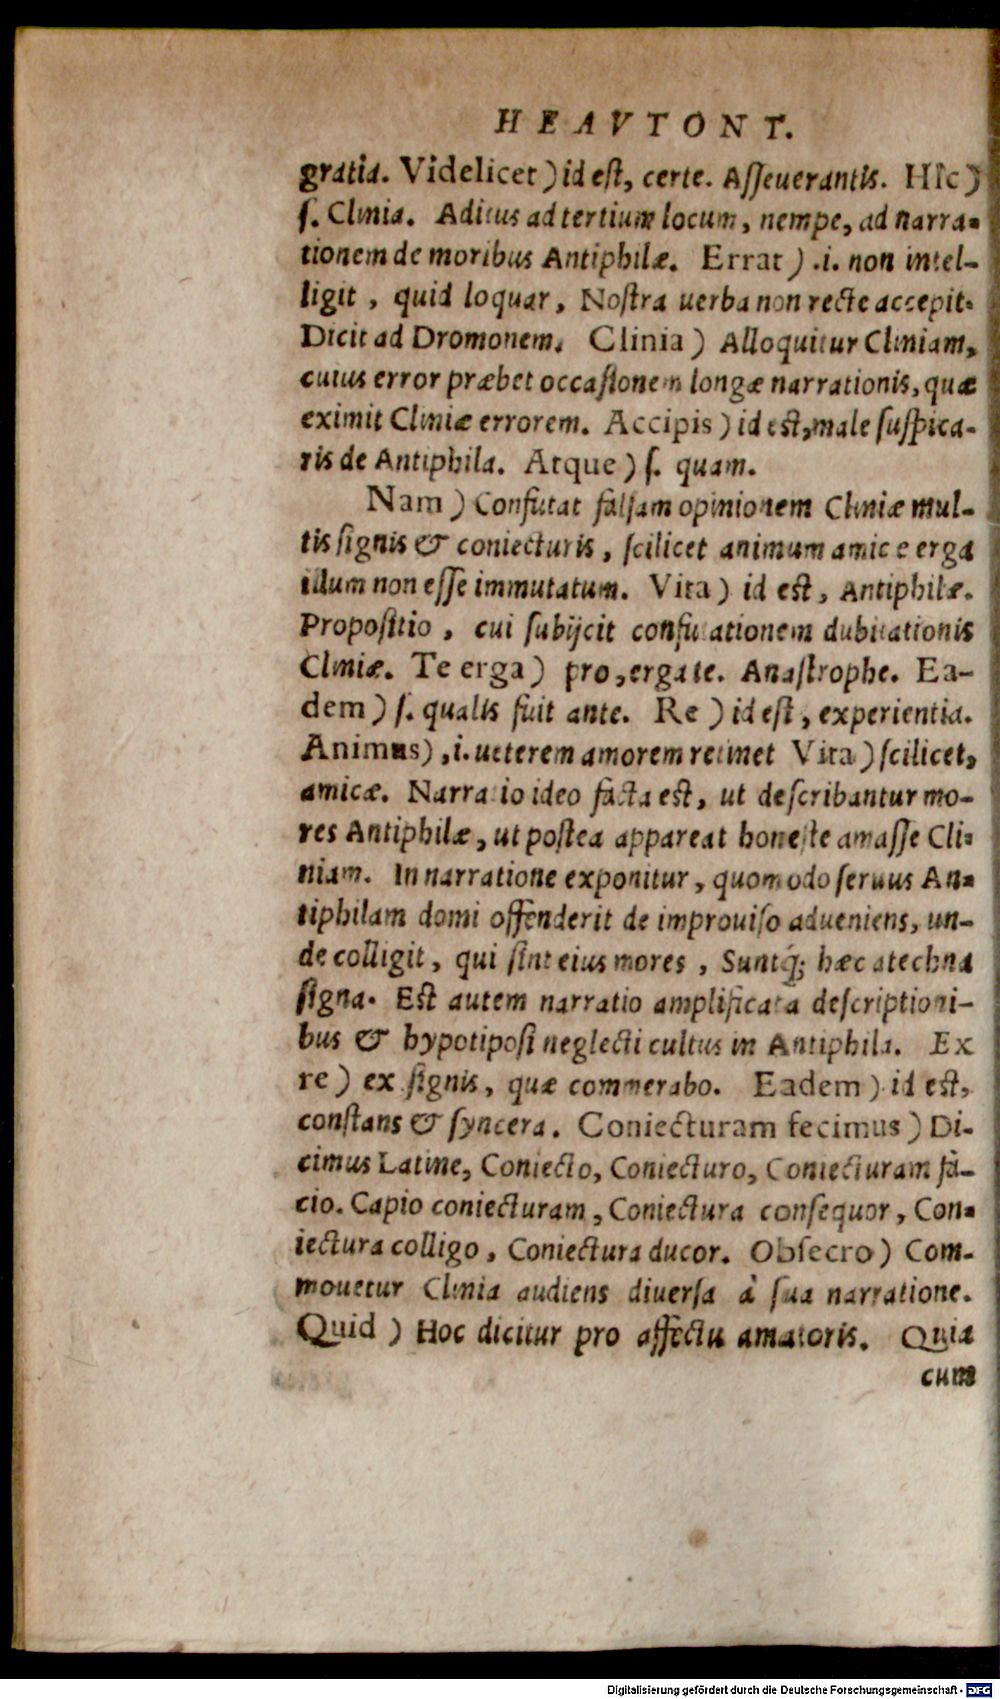 HEAVTONT.
gratia. Videlicet) id est, certe. Asseuerantis. Hic)
s. Clinia. Aditus ad tertium locum, nempe, ad narra-
tionem de moribus Antiphilæ. Errat) .i. non intel-
ligit, quid loquar, Nostra uerba non recte accepit.
Dicit ad Dromonem. Clinia) Alloquitur Cliniam,
cuius error præbet occasionem longæ narrationis, quæ
eximit Cliniæ errorem. Accipis) id est, male suspica-
ris de Antiphila. Atque) s. quam.
Nam) Confutat falsam opinionem Cliniæ mul-
tis signis & coniecturis, scilicet animum amicæ erga
illum non esse immutatum. Vita) id est, Antiphilæ.
Propositio, cui subijcit confutationem dubitationis
Cliniæ. Te erga) pro, erga te. Anastrophe. Ea-
dem) s. qualis fuit ante. Re) id est, experientia.
Animus) ,i. ueterem amorem retinet Vita) scilicet,
amicæ. Narratio ideo facta est, ut describantur mo-
res Antiphilæ, ut postea appareat honeste amasse Cli-
niam. In narratione exponitur, quomodo seruus An-
tiphilam domi offenderit de improuiso adueniens, un-
de colligit, qui sint eius mores, Suntq́; hæc atechna
signa. Est autem narratio amplificata descriptioni-
bus & hypotiposi neglecti cultus in Antiphila. Ex
re) ex signis, quæ commerabo. Eadem) id est,
constans & syncera. Coniecturam fecimus) Di-
cimus Latine, Coniecto, Coniecturo, Coniecturam fa-
cio. Capio coniecturam, Coniectura consequor, Con-
iectura colligo, Coniectura ducor. Obsecro) Com-
mouetur Clinia audiens diuersa à sua narratione.
Quid) Hoc dicitur pro affectu amatoris. Quia
cum
Digitalisierung gefördert durch die Deutsche Forschungsgemeinschaft - DFG